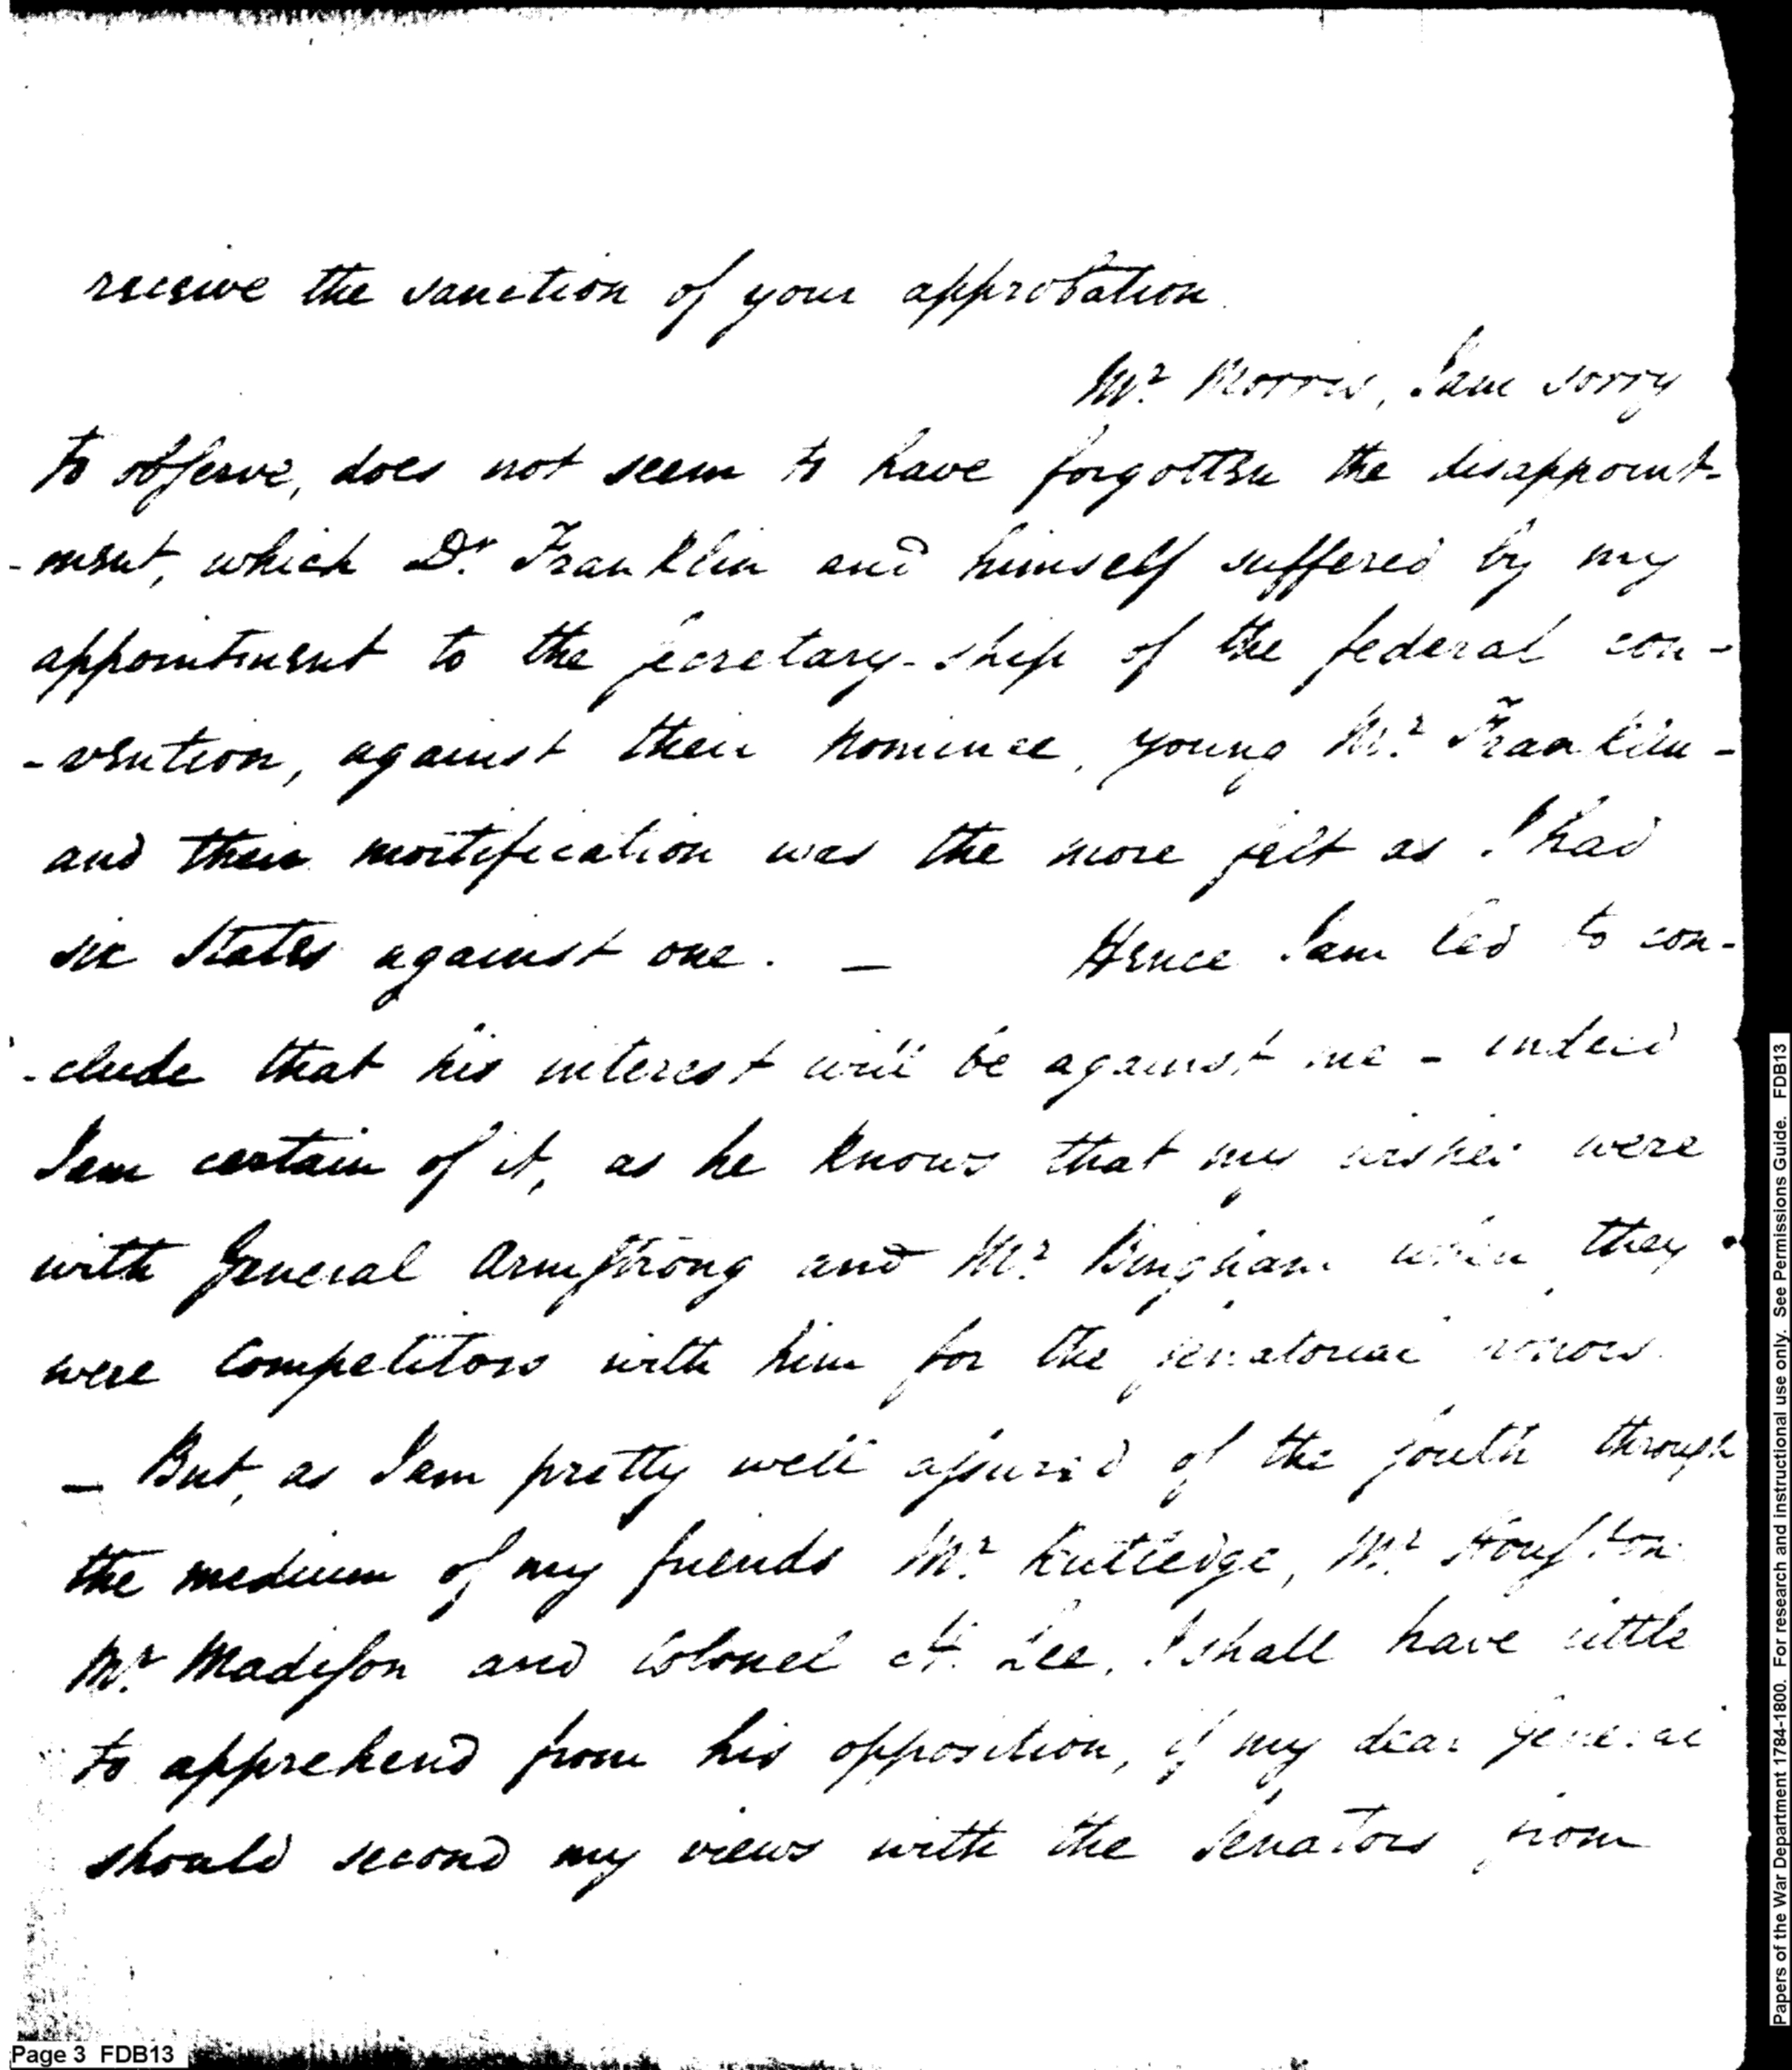 receive the sanction of your approbation.
Mr. Morris, I am sorry
to observe, does not seem to have forgotten the disappoint-
-ment, which Dr. Franklin and himself suffered by my
appointment to the secretary-ship of the federal con-
-vention, against their nominee, young Mr. Franklin -
and their mortification was the more felt as I had
six States against one. — Hence I am led to con-
-clude that his interest will be against me - indeed
I am certain of it, as he knows that my wishes were
with General Armstrong and Mr. Bingham when they
were competitors with him for the senatorial honors.
— But, as I am pretty well assured of the South through
the medium of my friends Mr. Rutledge, Mr. Houston
Mr. Madison and Colonel H. Lee, I shall have little
to apprehend from his opposition, if my dear General
should second my views with the Senators from
Page 3 FDB13
Papers of the War Department 1784-1800. For research and instructional use only. See Permissions Guide. FDB13